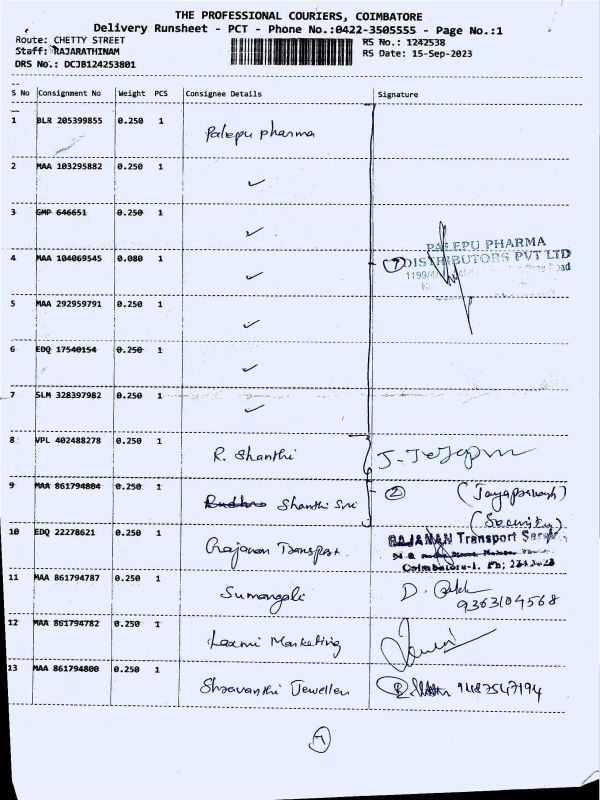 THE PROFESSIONAL COURIERS, COIMBATORE
Delivery Runsheet - PCT - Phone No.:0422-3505555 - Page No.:1
Route: CHETTY STREET RS No.: 1242538
Staff: RAJARATHINAM RS Date: 15-Sep-2023
DRS No.: DCJB124253801
S No Consignment No Weight PCS Consignee Details Signature
1 BLR 205399855 0.250 1 Palepu pharma
2 MAA 103295882 0.250 1 ✓
3 GMP 646651 0.250 1 ✓
PALEPU PHARMA
4 MAA 104069545 0.080 1 ✓ 7 DISTRIBUTORS PVT LTD
1199/4
5 MAA 292959791 0.250 1 ✓
6 EDQ 17540154 0.250 1 ✓
7 SLM 328397982 0.250 1 ✓
8 VPL 402488278 0.250 1 R. Shanthi
9 MAA 861794804 0.250 1 Shanthi Sri 2
(Security)
10 EDQ 22278621 0.250 1 Gajanan Transport GAJANAN Transport
Coimbatore-1. Ph;
11 MAA 861794787 0.250 1 Sumangali D.
9363104568
12 MAA 861794782 0.250 1 Laxmi Marketing
13 MAA 861794800 0.250 1 Shravanthi Jewellers 9487547194
7